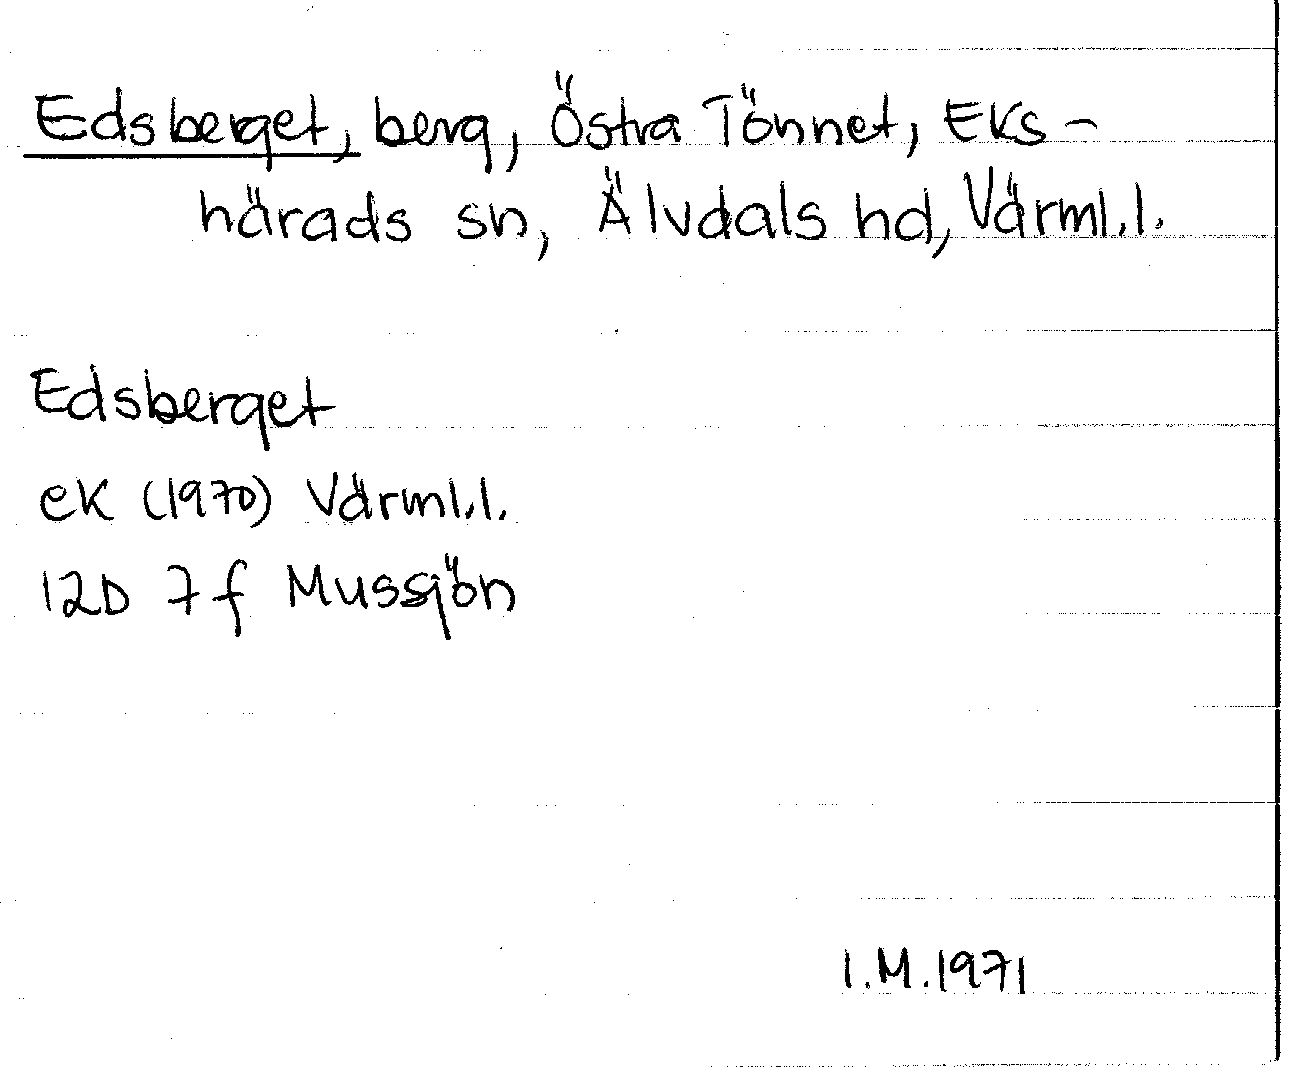 Edsberget, berg, Östra Tönnet, Eks-
härads sn, Älvdals hd, Värml.l.
Edsberget
ek (1970) Värml.l.
12D 7f Mussjön
I.M.1971